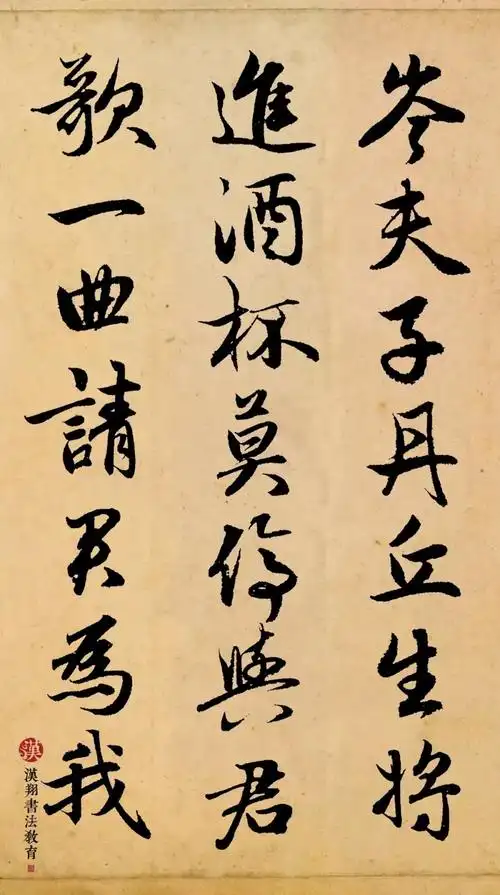 岑夫子丹丘生將
進酒杯莫停與君
歌一曲請君為我
漢
漢翔書法教育